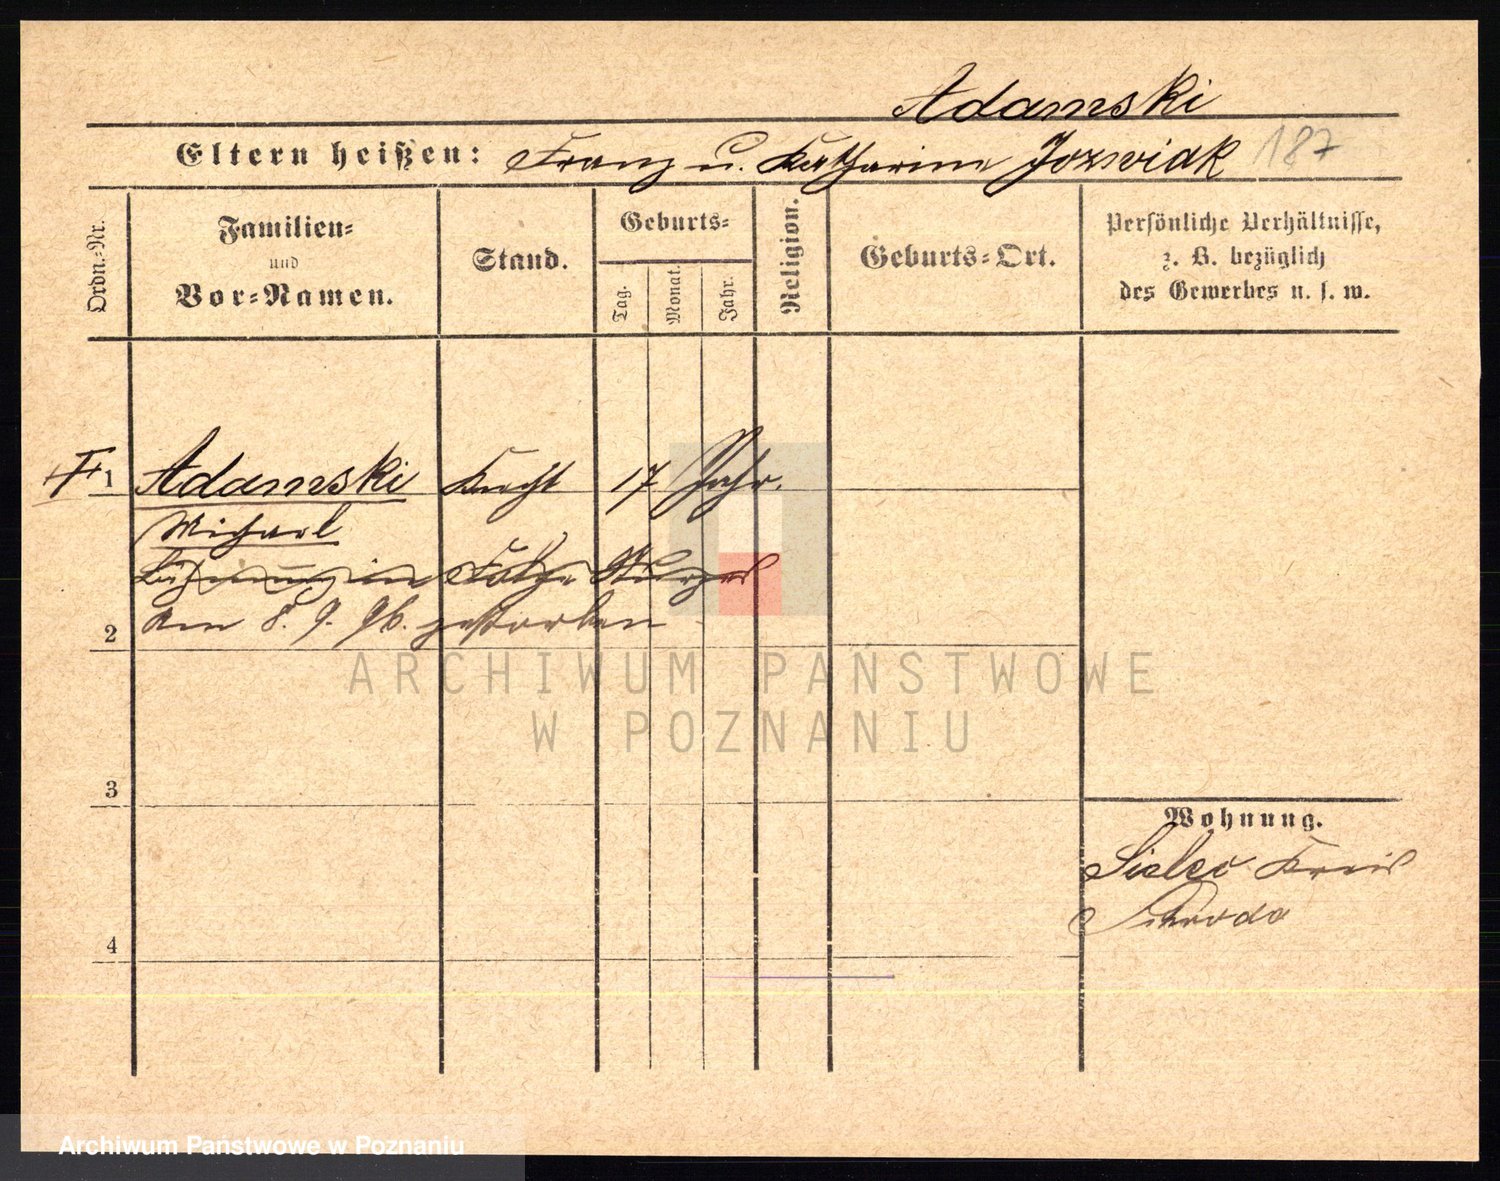 Adamski
Eltern heißen: Franz u. Katharina Jozwiak 187
Ordn.-Nr.
Familien-
und
Vor-Namen.
Stand.
Geburts-
Tag.
Monat.
Jahr.
Religion.
Geburts-Ort.
Persönliche Verhältnisse,
z. B. bezüglich
des Gewerbes u. s. w.
1 Adamski Knecht 17 Jahr.
Michael
in Folge Sturzes
2 am 8. 9. 96. gestorben
ARCHIWUM PAŃSTWOWE
W POZNANIU
3
Wohnung.
Kreis
Schroda
4
Archiwum Państwowe w Poznaniu